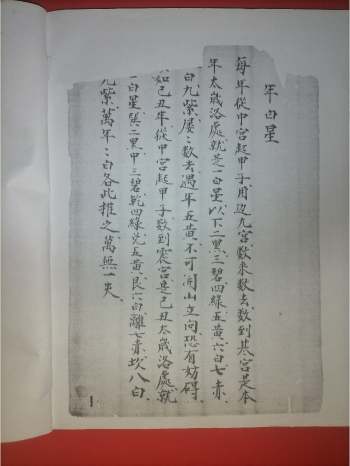 年白星
每年從中宮起甲子用边九宮数来数去数到某宮是本
年太歲洛處就是一白星以下二黑三碧四綠五黃六白七赤
白九紫屡〻数去遇年五黃不可開山立向恐有妨碍
如己丑年從中宮起甲子数到震宮是己丑太歲洛處就
一白星巽二黑中三碧乾四綠兑五黃艮六白離七赤坎八白
九紫萬年〻白各此推之萬無一失